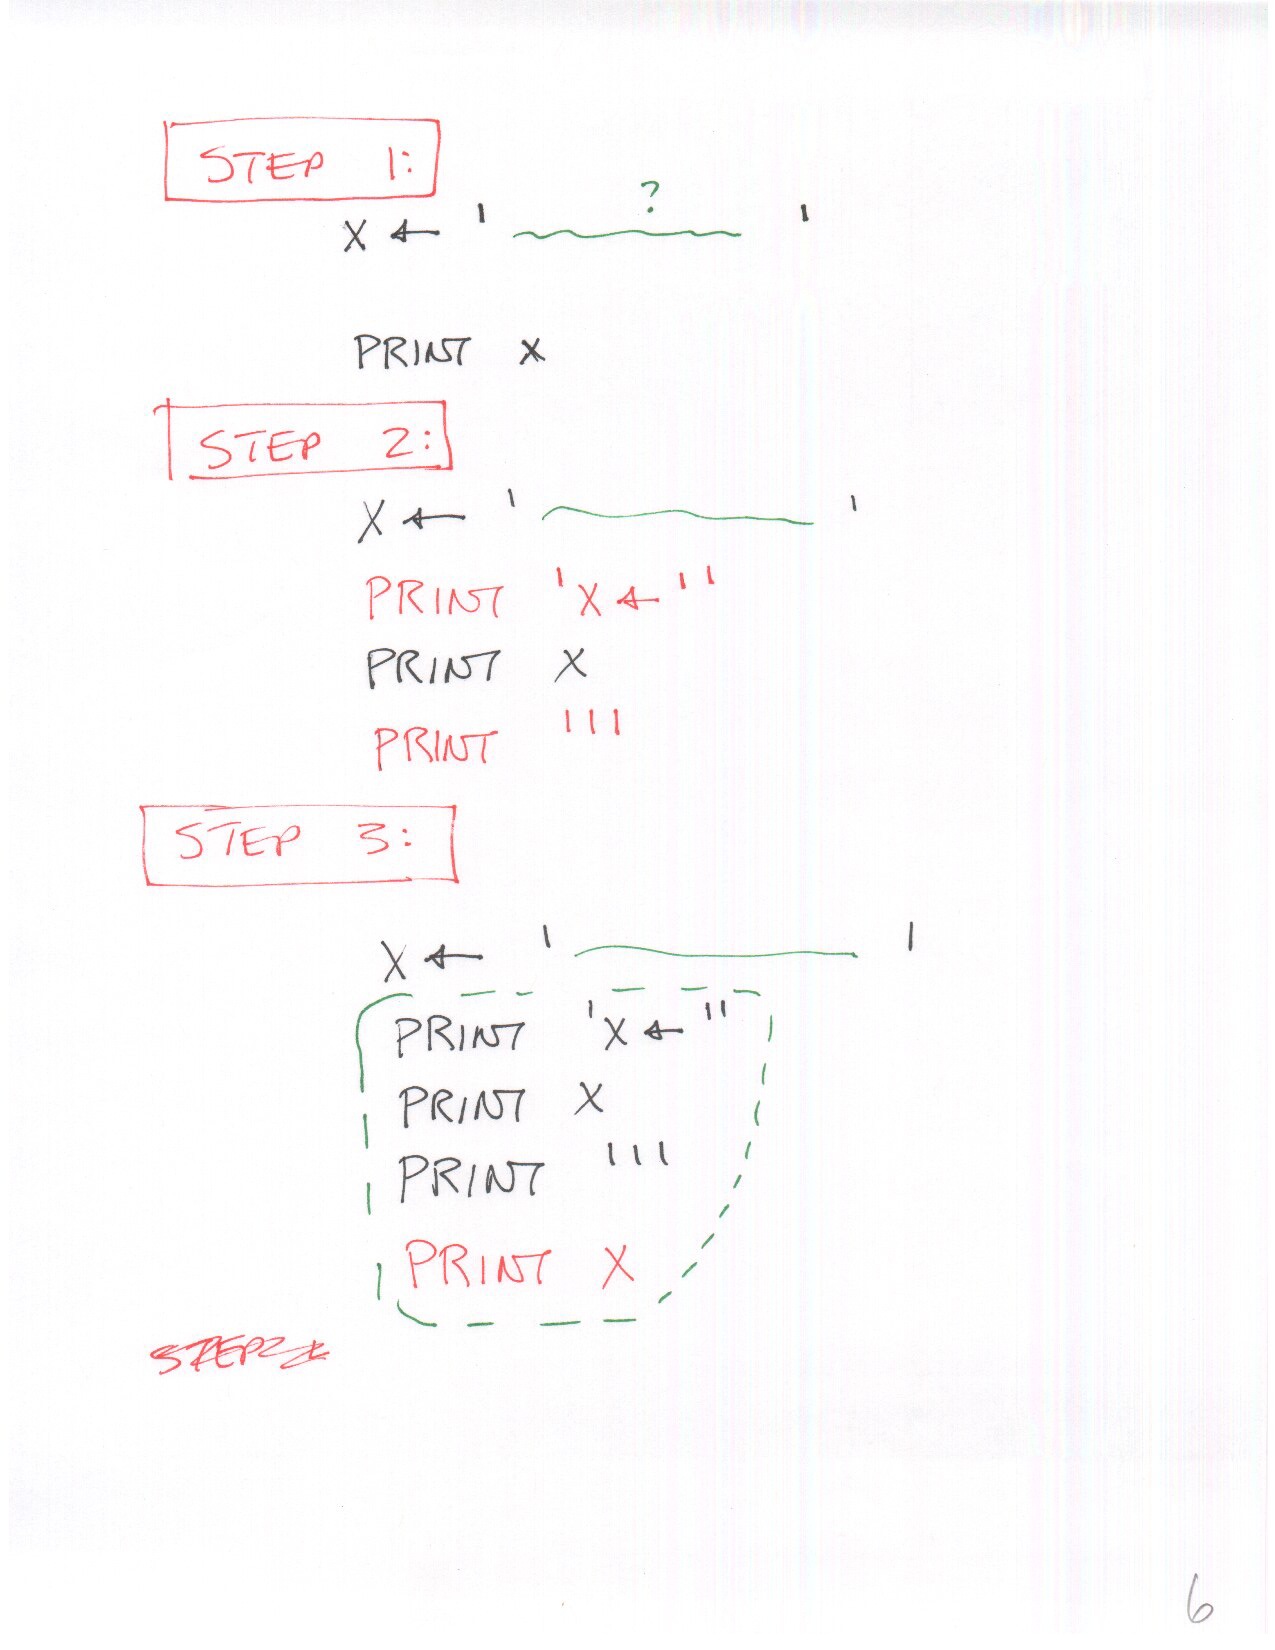 STEP 1:
?
X ← ' '
PRINT X
STEP 2:
X ← ' '
PRINT 'X ← ''
PRINT X
PRINT '''
STEP 3:
X ← ' '
PRINT 'X ← ''
PRINT X
PRINT '''
PRINT X
STEP
6